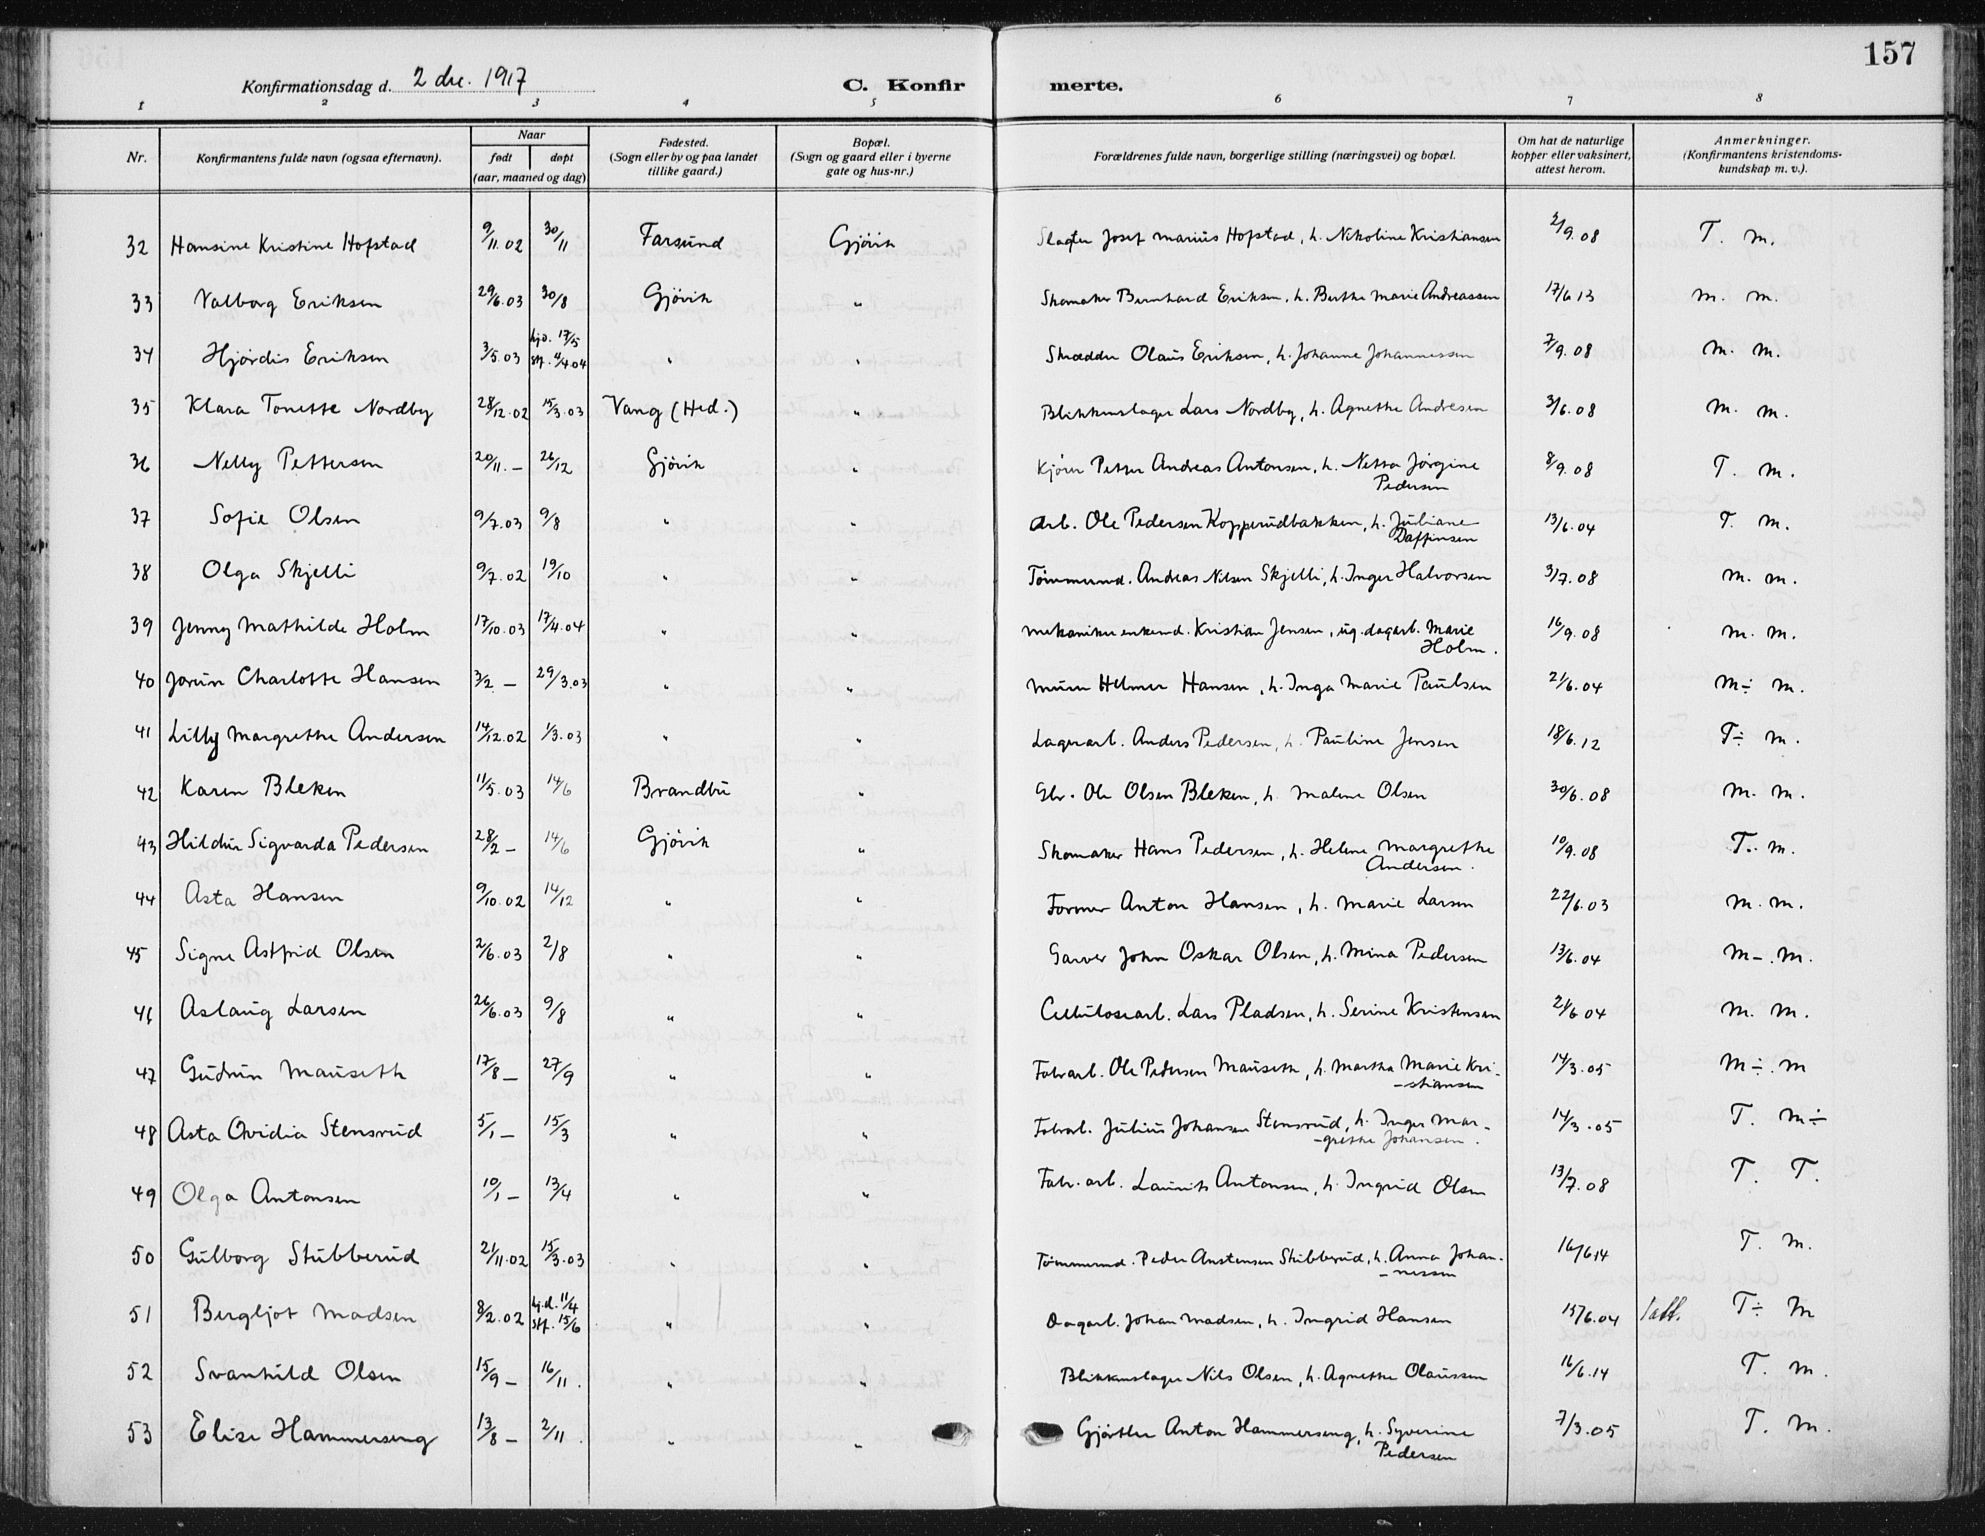 157
Konfirmationsdag d. 2 dec. 1917
C. Konfirmerte.
1 2 3 4 5 6 7 8
Nr. Konfirmantens fulde navn (ogsaa efternavn). Naar født døpt (aar, maaned og dag) Fødested. (Sogn eller by og paa landet tillike gaard.) Bopæl. (Sogn og gaard eller i byerne gate og hus-nr.) Forældrenes fulde navn, borgerlige stilling (næringsvei) og bopæl. Om hat de naturlige kopper eller vaksinert, attest herom. Anmerkninger. (Konfirmantens kristendomskundskap m. v.).
32 Hansine Kristine Hofstad 9/11.02 30/11 Farsund Gjövik Slagter Josef Marius Hofstad, h. Nikoline Kristiansen 2/9.08 T. M.
33 Valborg Eriksen 29/6.03 30/8 Gjövik " Skomaker Bernhard Eriksen, h. Berthe Marie Andreassen 17/6 13 M. M.
34 Hjördis Eriksen 3/5.03 hjd. 17/5 stf. 4/4.04 " " Skrædder Olaus Eriksen, h. Johanne Johannessen 7/9.08 M. M.
35 Klara Tonette Nordby 28/12.02 15/3.03 Vang (Hed.) " Blikkenslager Lars Nordby, h. Agnethe Andresen 3/6.08 M. M.
36 Nelly Pettersen 20/11. – 26/12 Gjövik " Kjörer Petter Andreas Antonsen, h. Netta Jörgine Pedersen 8/9.08 T. M.
37 Sofie Olsen 9/7.03 9/8 " " Arb. Ole Pedersen Kopperudbakken, h. Juliane Daffinsen 13/6.04 T. M.
38 Olga Skjelli 9/7.02 19/10 " " Tömmermd. Andreas Nilsen Skjelli, h. Inger Halvorsen 3/7.08 M. M.
39 Jenny Mathilde Holm 17/10.03 17/4.04 " " Mekaniker enkemd. Kristian Jensen, ug. dagarb. Marie Holm. 16/9.08 M. M.
40 Jorun Charlotte Hansen 3/2 – 29/3.03 " " Murer Helmer Hansen, h. Inga Marie Paulsen 21/6.04 M÷ M.
41 Lilly Margrethe Andersen 14/12.02 1/3.03 " " Lagerarb. Anders Pedersen, h. Pauline Jensen 18/6.12 T÷ M.
42 Karen Bleken 11/5.03 14/6 Brandbu " Gbr. Ole Olsen Bleken, h. Malene Olsen 30/6.08 M. M.
43 Hildur Sigvarda Pedersen 28/2 – 14/6 Gjövik " Skomaker Hans Pedersen, h. Helene Margrethe Andersen. 10/9.08 T. M.
44 Asta Hansen 9/10.02 14/12 " " Former Anton Hansen, h. Marie Larsen 22/6.03 M. M.
45 Signe Astfrid Olsen 2/6.03 2/8 " " Garver John Oskar Olsen, h. Mina Pedersen 13/6.04 M–. M.
46 Aslaug Larsen 26/6.03 9/8 " " Cellulosearb. Lars Pladsen, h. Serine Kristensen 21/6 04 M. M.
47 Gudrun Mauseth 17/8 – 27/9 " " Fabrarb. Ole Pedersen Mauseth, h. Martha Marie Kri- -stiansen 14/3.05 M÷. M
48 Asta Ovidia Stensrud 5/1 – 15/3 " " Fabrarb. Julius Johansen Stensrud, h. Inger Mar- -grethe Johansen. 14/3.05 T. M÷
49 Olga Antonsen 10/1 – 13/4 " " Fabr. arb. Laurits Antonsen, h. Ingrid Olsen 13/7.08 T. T.
50 Gulborg Stubberud 21/11.02 15/3.03 " " Tömmermd. Peder Anstensen Stubberud, h. Anna Johan- -nessen 16/6 14 T. M.
51 Bergljot Madsen 8/2.02 hj.d. 11/4 stf. 15/6 " " Dagarb. Johan Madsen, h. Ingrid Hansen 15/6.04 T÷ M
52 Svanhild Olsen 15/9 – 16/11. " " Blikkenslager Nils Olsen, h. Agnethe Olaussen 16/6.14 T. M.
53 Elise Hammerseng 13/8 – 2/11. " " Gjörtler Anton Hammerseng, h. Syverine Pedersen 7/3.05 T. M.